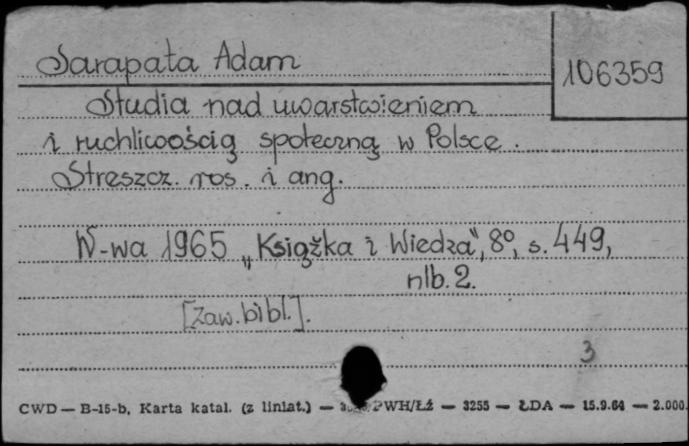 Sarapata Adam
106359
Studia nad uwarstwieniem
i ruchliwością społeczną w Polsce.
Streszcz. ros. i ang.
W-wa 1965 „Książka i Wiedza", 8°, s. 449,
nlb. 2.
[Zaw. bibl.].
3
CWD — B-15-b, Karta katal. (z liniat.) — PWH/Łź — 3255 — ŁDA — 15.9.64 — 2.000.